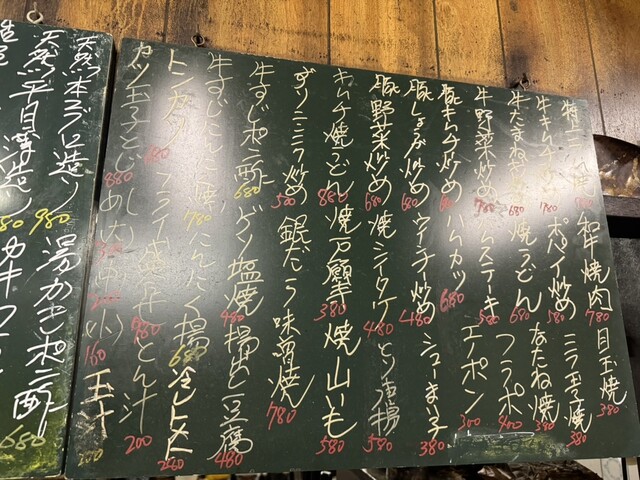 和牛焼肉 780
目玉焼 380
ポパイ炒め
ニラ玉子焼 380
牛たまね
焼うどん 680
なたね焼 380
牛野菜炒め 780
ハムステーキ 580
フラポ 400
豚キムチ炒め
ハムカツ 680
エノポン 300
豚しょうが炒め 680
ウインナー炒め 480
シューまい子 380
豚野菜炒め 680
焼シータケ 480
とり唐揚 580
キムチ焼うどん 880
焼万願寺 380
焼山いも 580
ずりニンニク炒め 500
銀だら味噌焼 780
牛すじポン酢 680
ゲソ塩焼 480
揚出し豆腐 480
牛すじにんに 780
にんにく揚 680
冷しトマト
トンカツ 680
フライ盛合 980
とん汁 200
カツ玉子とじ 880
めし(大) 300
(中) 200
(小) 160
玉汁
天然本マグロ造り 980
湯かきポン酢 680
天然平目薄造り